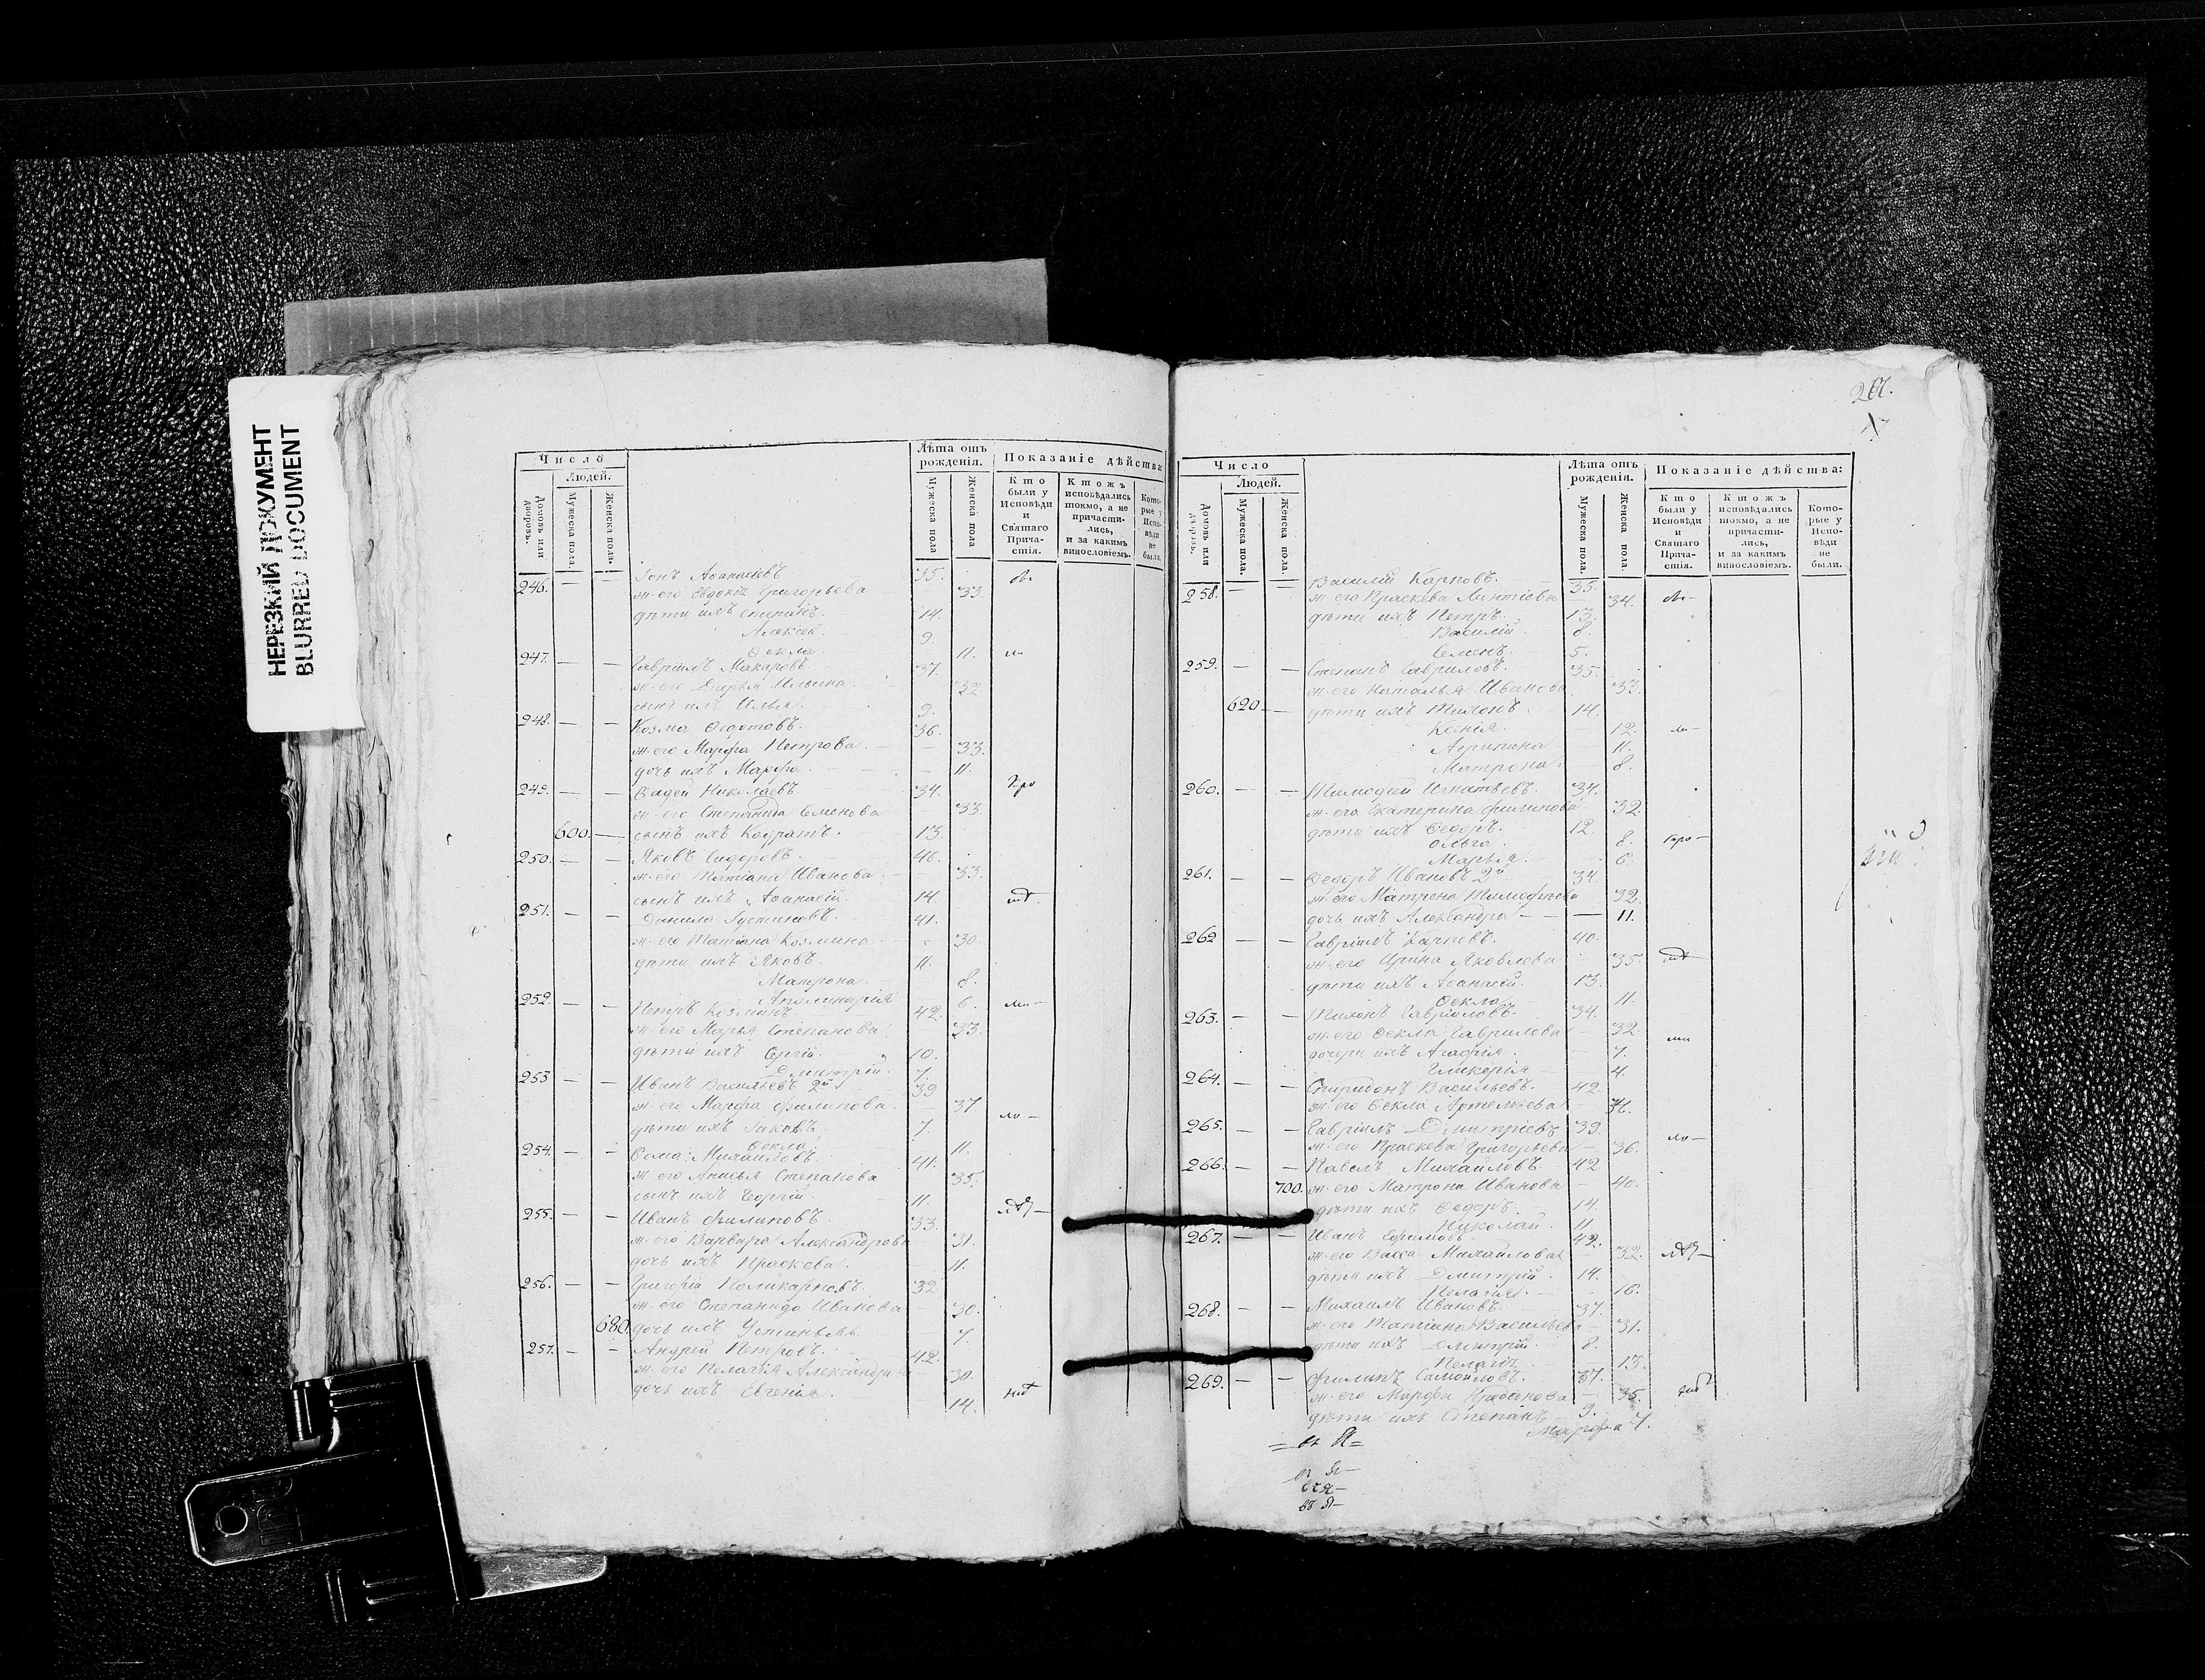 НЕРЕЗКИЙ ДОКУМЕНТ
BLURRED DOCUMENT
Число
Людей.
Домовъ или дворовъ.
Мужеска пола.
Женска пола.
Лѣта отъ рожденія.
Мужеска пола
Женска пола
Показаніе дѣйства:
Кто были у Исповѣди и Святаго Причастія.
Ктожъ исповѣдались токмо, а не причастились, и за какимъ винословіемъ.
Которые у Исповѣди не были.
246. — — Іонъ Аѳанасіевъ 35.
ж. его Евдокія Григорьева 33.
дѣти ихъ Степанъ. 14.
Алексѣй. 9.
Ѳекла. 11.
247. — — Гавріилъ Макаровъ. 37.
ж. его Дарья Ильина. 32
сынъ ихъ Илья. 9.
248. — — Козма Ѳедотовъ. 36.
ж. его Марфа Петрова. 33.
дочь ихъ Марфа. 11.
249. — — Николаевъ. 34.
ж. его Степанида Семенова 33
600. — сынъ ихъ Кодратъ. 13.
250. — — Яковъ Сидоровъ. 46.
ж. его Татіана Иванова. 33.
сынъ ихъ Аѳанасій. 14.
251. — — Данило 41.
ж. его Татіана Козмина. 30.
дѣти ихъ Яковъ. 11.
Матрона. 8.
6.
252. — — Петръ Козминъ. 42.
ж. его Марья Степанова. 33.
дѣти ихъ Сергій. 10.
Дмитрій. 7.
253 — — Иванъ Васильевъ 2й 39
ж. его Марфа Филипова. 37
дѣти ихъ Іаковъ 7.
Ѳекла 11.
254. — — Ѳома Михайловъ. 41.
ж его Анисья Степанова 35.
сынъ ихъ Георгій. 11.
255. — — Иванъ Филиповъ. 33.
ж. его Варвара Александрова 31.
дочь ихъ Праскева. 11.
256. — — Григорій Поликарповъ. 32
ж. его Степанида Иванова 30.
680. дочь ихъ Устинья. 7.
257. — — Андрей Петровъ. 42.
ж. его Пелагія Александрова 30.
дочь ихъ Евгенія. 14.
Число
Людей.
Домовъ или дворовъ.
Мужеска пола.
Женска пола.
Лѣта отъ рожденія.
Мужеска пола.
Женска пола.
Показаніе дѣйства:
Кто были у Исповѣди и Святаго Причастія.
Ктожъ исповѣдались токмо, а не причастились, и за какимъ винословіемъ.
Которые у Исповѣди не были.
258. — — Василій Карповъ. 35.
ж. его Праскева Леонтіева 34.
дѣти ихъ Петръ. 13.
Василій. 8.
Семенъ. 5.
259. — — Степанъ Гавриловъ. 35.
ж. его Наталья Иванова 33.
620 — дѣти ихъ Тихонъ. 14.
Ксенія. 12.
Агрипина 11.
Матрона. 8.
260. — — Тимофей Игнатьевъ. 34.
ж. его Екатерина Филипова 32.
дѣти ихъ Ѳедоръ. 12.
Ольга. 8.
Марья. 6.
261. — — Ѳедоръ Ивановъ 2й 34.
ж. его Матрена Тимофѣева 32.
дочь ихъ Александра — — — 11.
262 — — Гавріилъ Карповъ. 40.
ж. его Ирина Яковлева 35.
дѣти ихъ Аѳанасій. 13.
Ѳекла 11.
263. — — Тихонъ Гавриловъ. 34.
ж. его Ѳекла Гаврилова 32.
дочери ихъ Агафія. 7.
Гликерья 4.
264. — — Спиридонъ Васильевъ. 42
ж. его Ѳекла Артемьева
265. — — Гавріилъ Дмитріевъ 39
ж. его Праскева Григорьева 36.
266. — — Павелъ Михайловъ. 42
700. ж. его Матрона Иванова 40.
дѣти ихъ Ѳедоръ. 14.
Николай. 11.
267. — — Иванъ Ефимовъ. 42.
ж. его Васса Михайлова 32.
дѣти ихъ Дмитрій. 14.
Пелагія. 16.
268. — — Михаилъ Ивановъ. 37.
ж. его Татіана Васильева 31.
дѣти ихъ Дмитрій. 8.
Пелагія 13.
269. — — Филипъ Самойловъ. 37.
ж. его Марфа 35.
дѣти ихъ Степанъ 9.
Марфа 7.